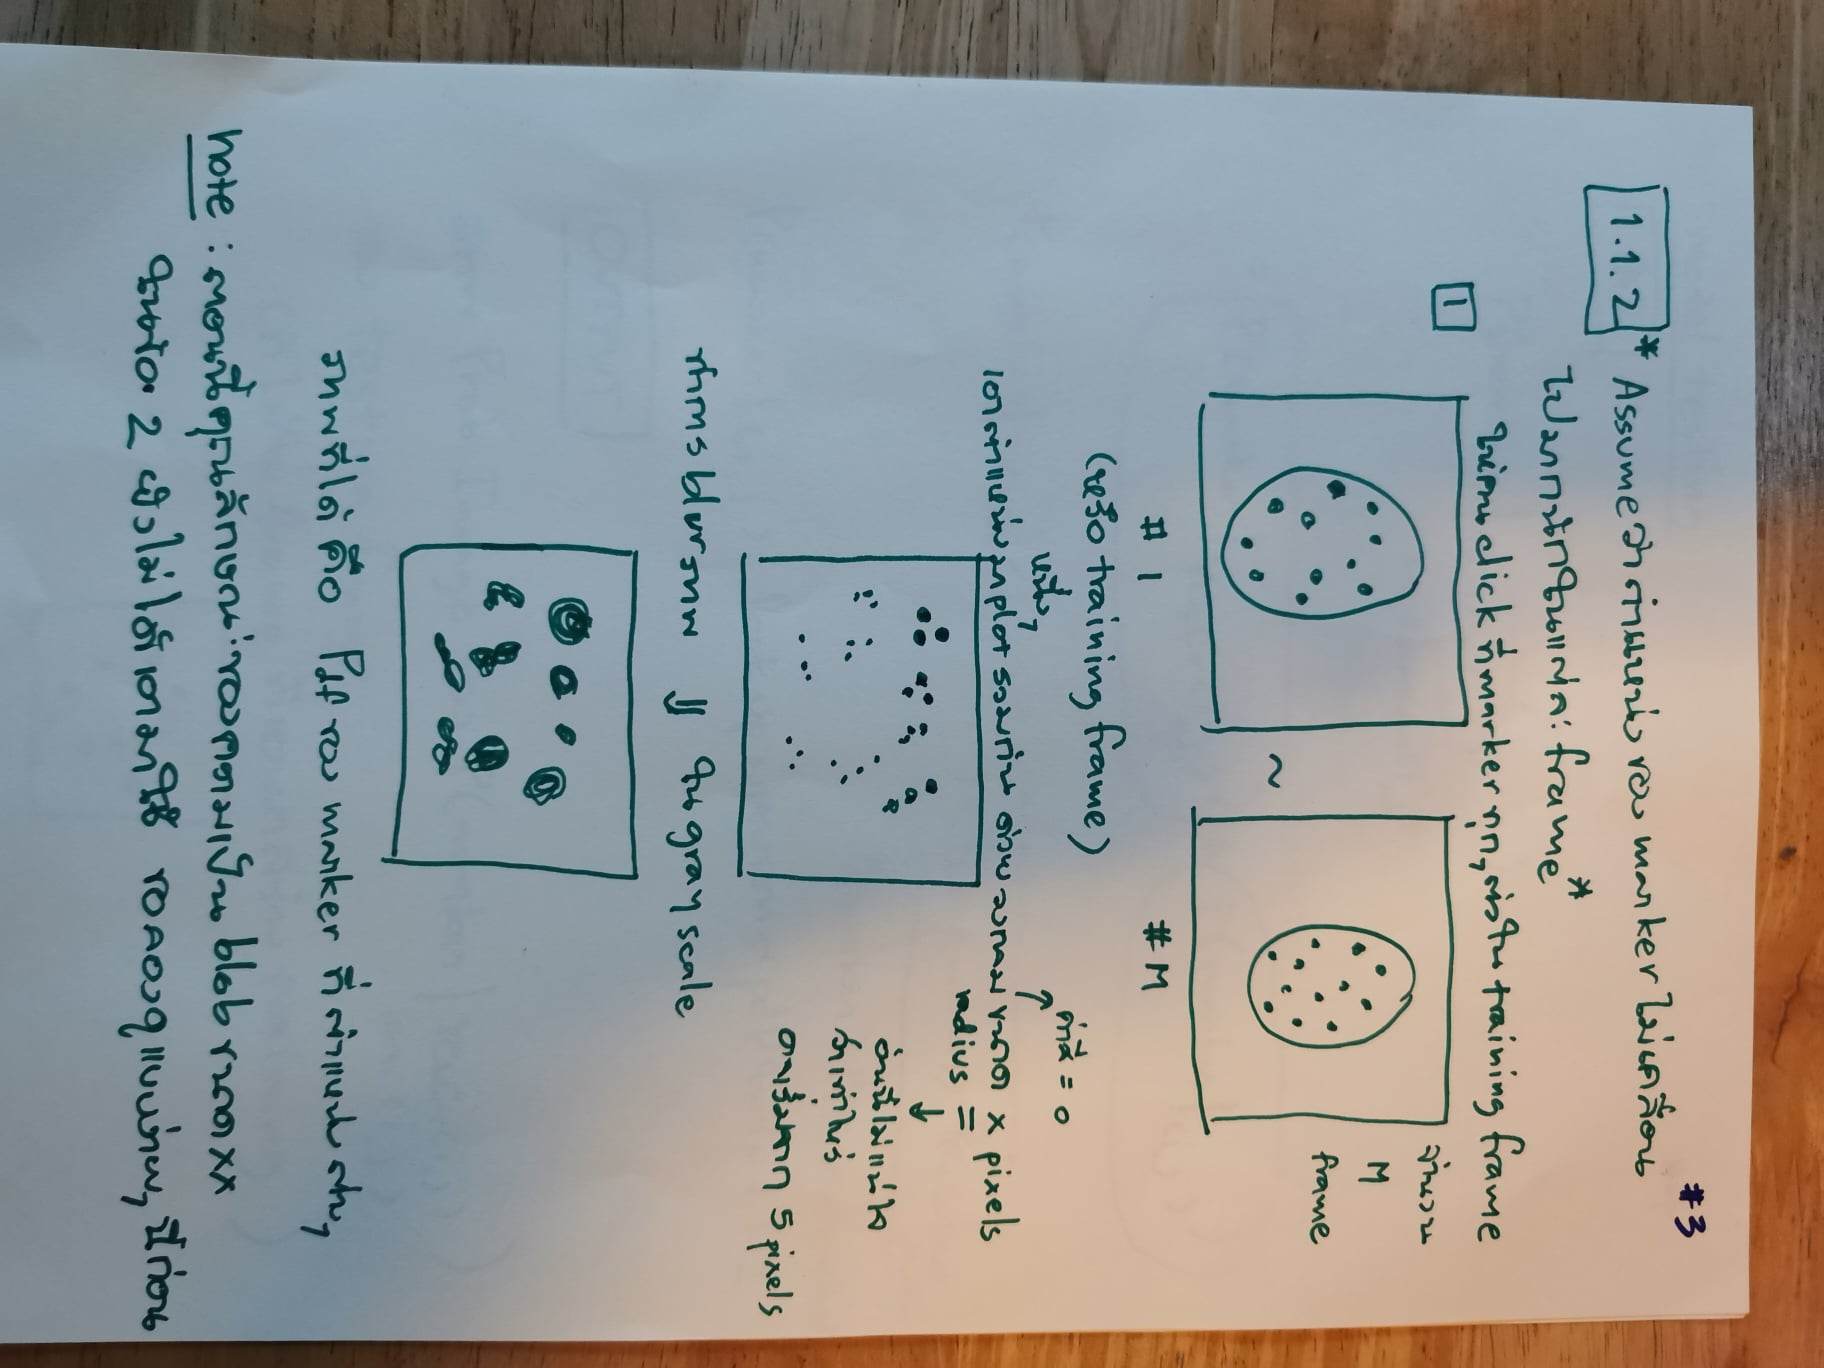 #3
1.1.2 * Assume ว่าตำแหน่งของ marker ไม่เคลื่อน
ไปมากนักในแต่ละ frame*
ให้คน click ที่ marker ทุกๆ ตัวใน training frame
1
จำนวน
M
frame
~
# 1
# M
(หรือ training frame)
หนึ่งๆ
ค่าสี = 0
เอาตำแหน่งมา plot รวมกัน ด้วยวงกลมขนาด x pixels
radius =
อันนี้ไม่แน่ใจ
ว่าเท่าไหร่
อาจเริ่มจาก 5 pixels
ทำการ blur ภาพ ⇓ ใน gray scale
ภาพที่ได้ คือ Pdf ของ marker ที่ตำแหน่งต่างๆ
note : ตอนนี้คุณลักษณะของความเป็น blob ขนาด xx
ในข้อ 2 ยังไม่ได้เอามาใช้ ขอลองดูแบบง่ายๆ นี้ก่อน